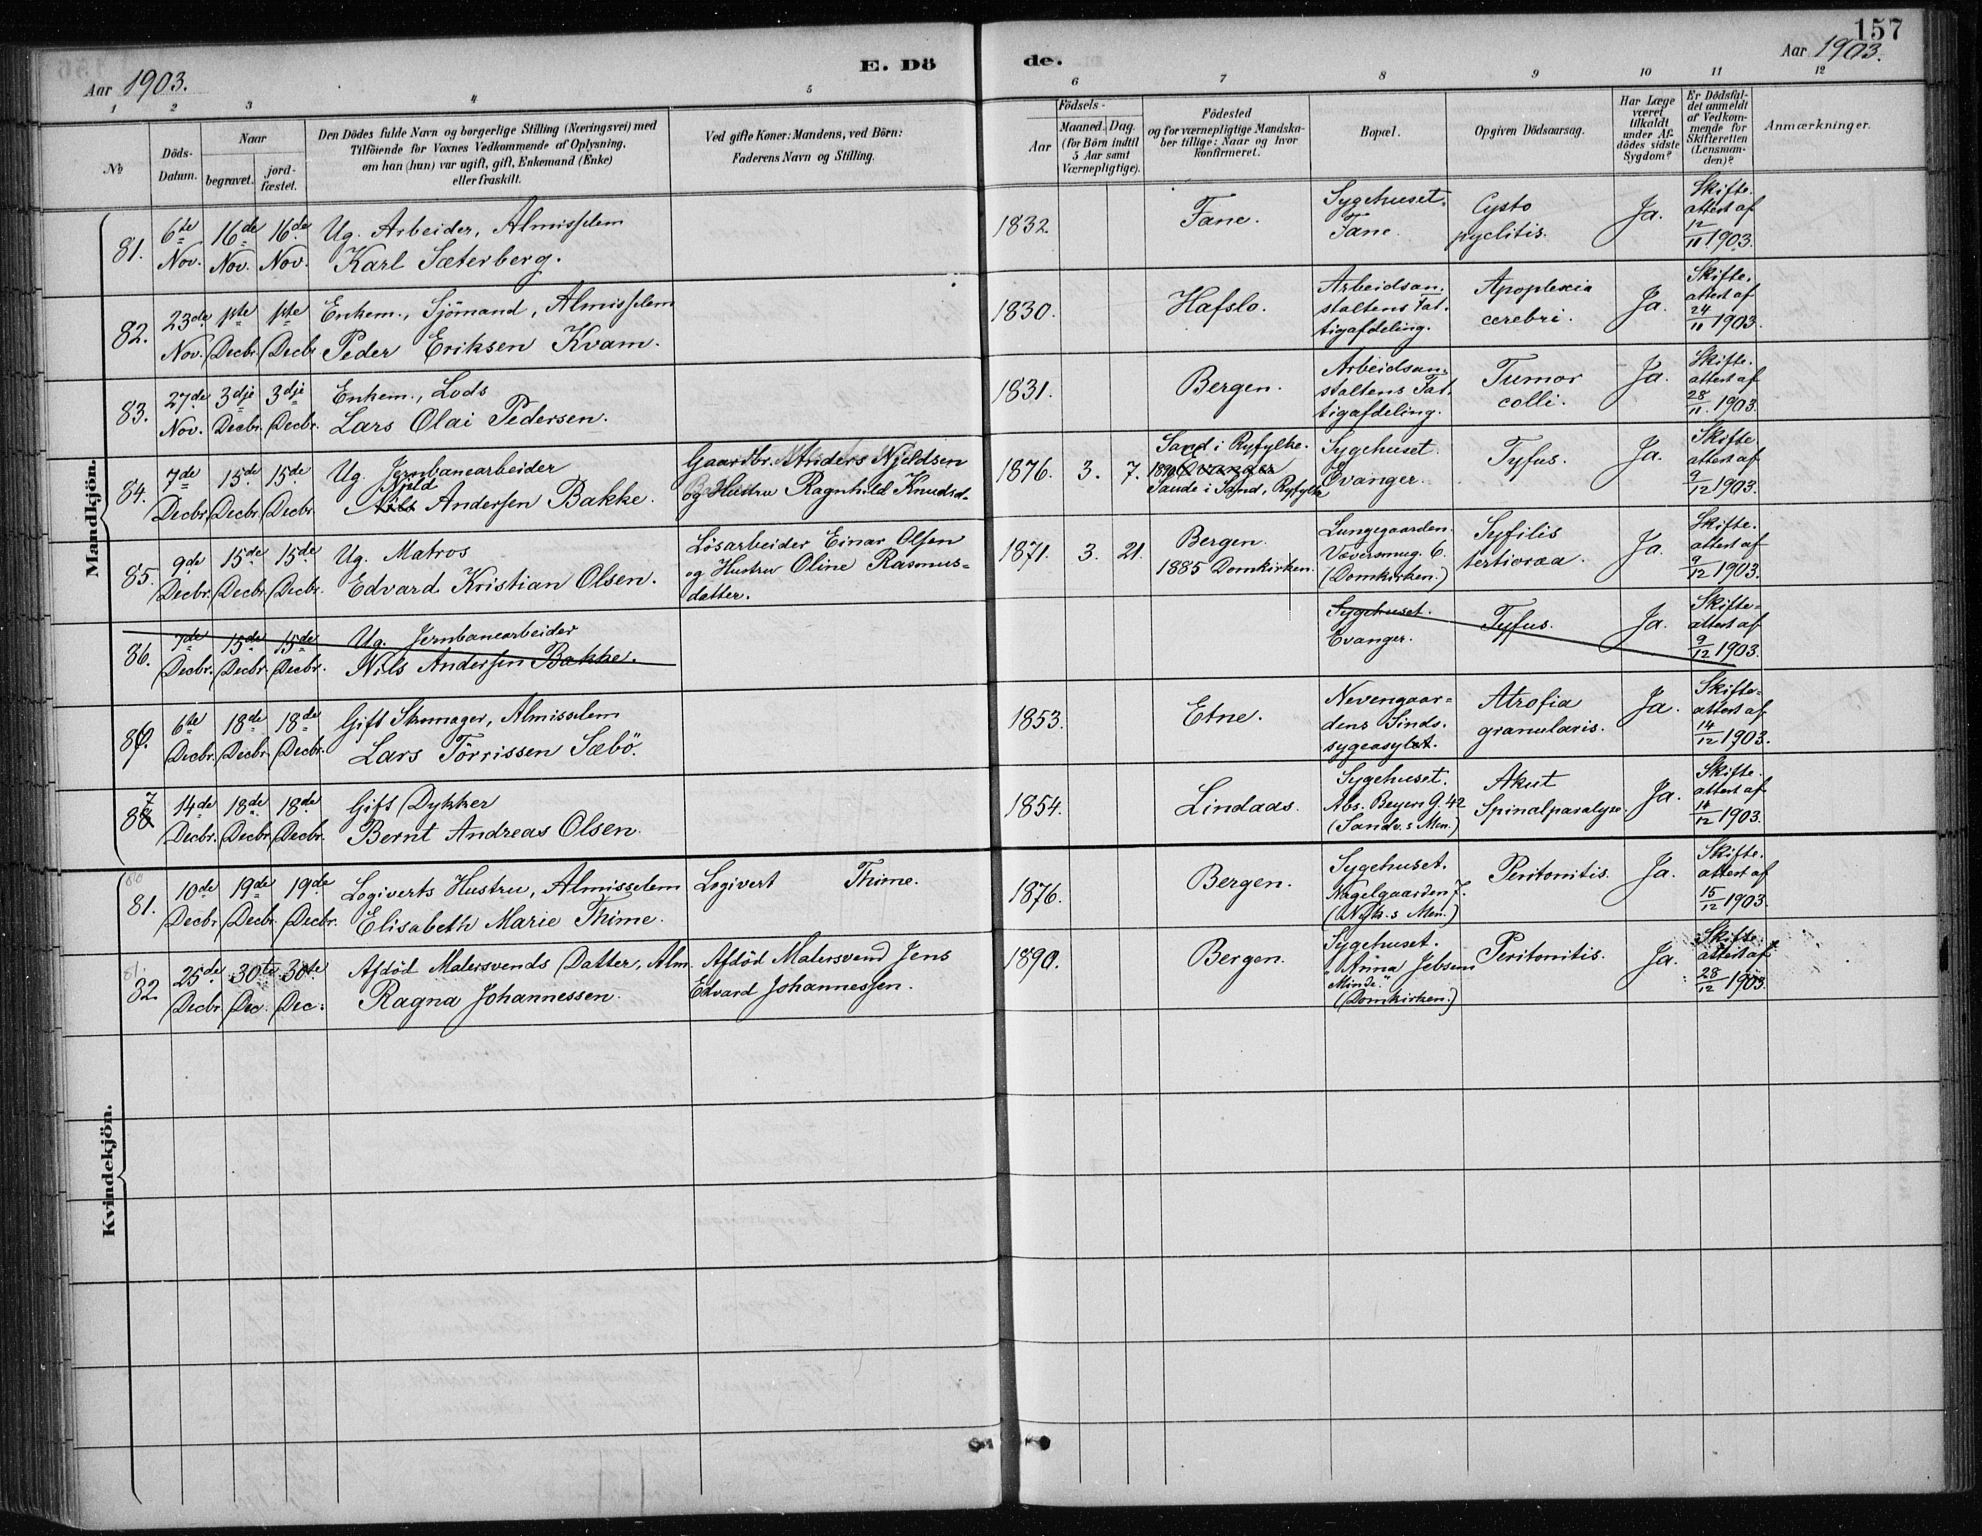 157
Aar 1903.
E. Dö de.
Aar 1903.
1 2 3 4 5 6 7 8 9 10 11 12
No
Döds-
Datum.
Naar
begravet.
jord-
fæstet.
Den Dödes fulde Navn og borgerlige Stilling (Næringsvei) med
Tilföiende for Voxnes Vedkommende af Oplysning,
om han (hun) var ugift, gift, Enkemand (Enke)
eller fraskilt.
Ved gifte Koner: Mandens, ved Börn:
Faderens Navn og Stilling.
Födsels-
Aar
Maaned. Dag.
(for Börn indtil
5 Aar samt
Værnepligtige).
Födested
og for værnepligtige Mandska-
ber tillige: Naar og hvor
konfirmeret.
Bopæl.
Opgiven Dödsaarsag.
Har Læge
været
tilkaldt
under Af-
dödes sidste
Sygdom?
Er Dödsfal-
det anmeldt
af Vedkom-
mende for
Skifteretten
(Lensman-
den)?
Anmærkninger.
Mandkjön.
81.
6te Nov.
16de Nov.
16de Nov.
Ug. Arbeider, Almisselem
Karl Sæterberg.
1832.
Fane.
Sygehuset.
Fane.
Cysto
pyelitis.
Ja.
Skifte.
attest af
12/11 1903.
82.
23de Nov.
1ste Decbr.
1ste Decbr.
Enkem., Sjömand, Almisselem
Peder Eriksen Kvam.
1830.
Hafslo.
Arbeidsan-
staltens Fat-
tigafdeling.
Apoplexia
cerebri.
Ja.
Skifte.
attest af
24/11 1903.
83.
27de Nov.
3dje Decbr.
3dje Decbr.
Enkem., Lods
Lars Olai Pedersen.
1831.
Bergen.
Arbeidsan-
staltens Fat-
tigafdeling.
Tumor
colli.
Ja.
Skifte.
attest af
28/11 1903.
84.
7de Decbr.
15de Decbr.
15de Decbr.
Ug. Jernbanearbeider
Nils Andersen Bakke.
Gaardbr. Anders Njeldsen
og Hustru Ragnhild Knudsd.
1876. 3. 7.
Sand i Ryfylke.
1890 Evanger
Sande i Sand, Ryfylke
Sygehuset.
Evanger.
Tyfus.
Ja.
Skifte
attest af
9/12 1903.
85.
9de Decbr.
15de Decbr.
15de Decbr.
Ug. Matros
Edvard Kristian Olsen.
Lösarbeider Einar Olsen
og Hustru Oline Rasmus-
datter.
1871. 3. 21.
Bergen.
1885 Domkirken.
Lungegaarden.
Væversmug. 6.
(Domkirken.)
Syfilis
tertiaraa.
Ja.
Skifte.
attest af
9/12 1903.
86.
7de Decbr.
15de Decbr.
15de Decbr.
Ug. Jernbanearbeider
Nils Andersen Bakke.
Sygehuset.
Evanger.
Tyfus.
Ja.
Skifte-
attest af
9/12 1903.
86.
6te Decbr.
18de Decbr.
18de Decbr.
Gift Skomager, Almisselem
Lars Törrissen Sæbö.
1853.
Etne.
Nevengaar-
dens Sinds.
sygeasylet.
Atrofia
granularis.
Ja.
Skifte-
attest af
14/12 1903.
87
14de Decbr.
18de Decbr.
18de Decbr.
Gift Dykker
Bernt Andreas Olsen.
1854.
Lindaas.
Sygehuset.
Abs. Beyers G. 42
(Sandv.s Men.)
Akut
Spinalparalyse.
Ja.
Skifte.
attest af
14/12 1903.
Kvindekjön.
80
81.
10de Decbr.
19de Decbr.
19de Decbr.
Logiverts Hustru, Almisselem
Elisabeth Marie Thime.
Logivert Thime.
1876.
Bergen.
Sygehuset.
Nagelgaarden 7.
(Nyk.s Men.)
Peritonitis.
Ja.
Skifte.
attest af
15/12 1903.
81.
82.
25de Decbr.
30te Dec.
30te Dec.
Afdöd Malersvends Datter, Alm.
Ragna Johannessen.
Afdöd Malersvend Jens
Edvard Johannessen.
1890.
Bergen.
Sygehuset.
"Anna Jebsens
Minde."
(Domkirken.)
Peritonitis.
Ja.
Skifte.
attest af
28/12 1903.